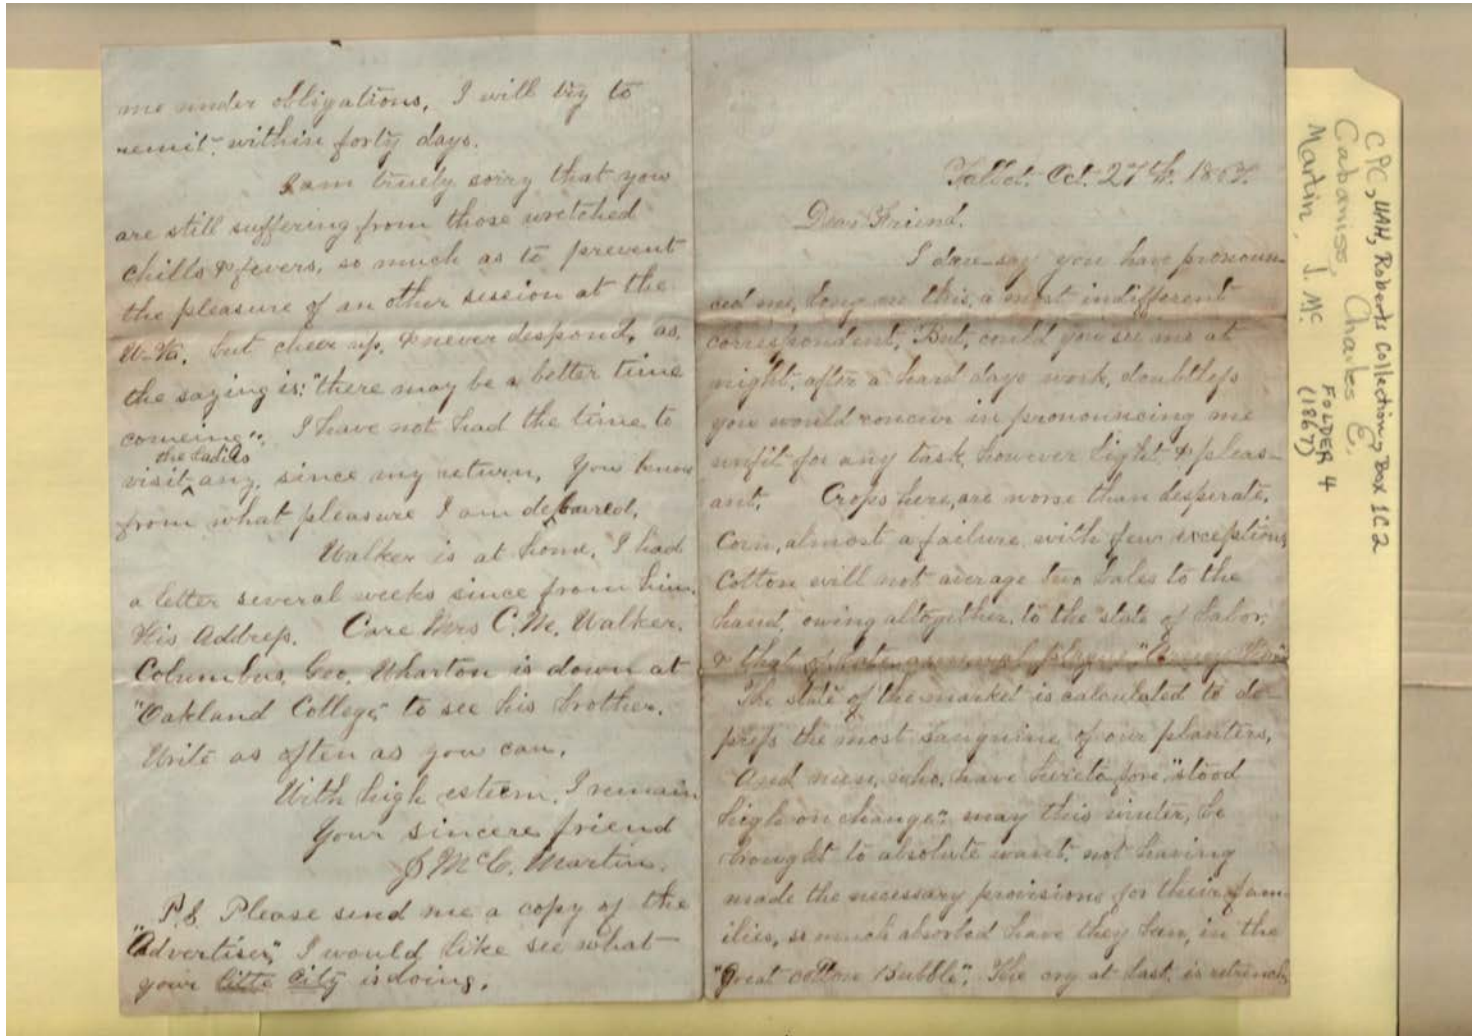 me under obligations. I will try to
remit within forty days.
I am truely sorry that you
are still suffering from those wretched
chills & fevers, so much as to prevent
the pleasure of an other session at the
but cheer up, & never despond, as,
the saying is: "there may be a better time
comeing". I have not had the time to
the Ladies
visit any, since my return. You know
from what pleasure I am debarred.
Walker is at home, I had
a letter several weeks since from him.
His Address. Care Mrs C. M. Walker.
Columbus. Geo. Wharton is down at
"Oakland College," to see his brother.
Write as often as you can.
With high esteem, I remain
Your sincere friend
J McC. Martin.
P.S. Please send me a copy of the
"Advertiser," I would like see what
your little city is doing.
Oct. 27th. 1867.
Dear Friend.
I dare-say you have pronoun-
ced me, long ere this, a most indifferent
correspondent. But, could you see me at
night, after a hard days work, doubtless
you would concur in pronouncing me
unfit for any task, however light & pleas-
ant. Crops here, are worse than desperate.
Corn, almost a failure, with few exceptions
Cotton will not average two bales to the
hand, owing altogether, to the state of labor,
& that of late annual plague, "Army Worm"
The state of the market is calculated to de-
press the most sanguine of our planters.
And men, who, have heretofore, "stood
high on change" may this winter, be
brought to absolute want, not having
made the necessary provisions for their fam-
ilies, so much absorbed have they been, in the
"great cotton Bubble". The cry at last, is retrench
CPC, UAH, Roberts Collection, Box 1C2
Cabaniss, Charles E.
Martin, J. Mc. FOLDER 4
(1867)